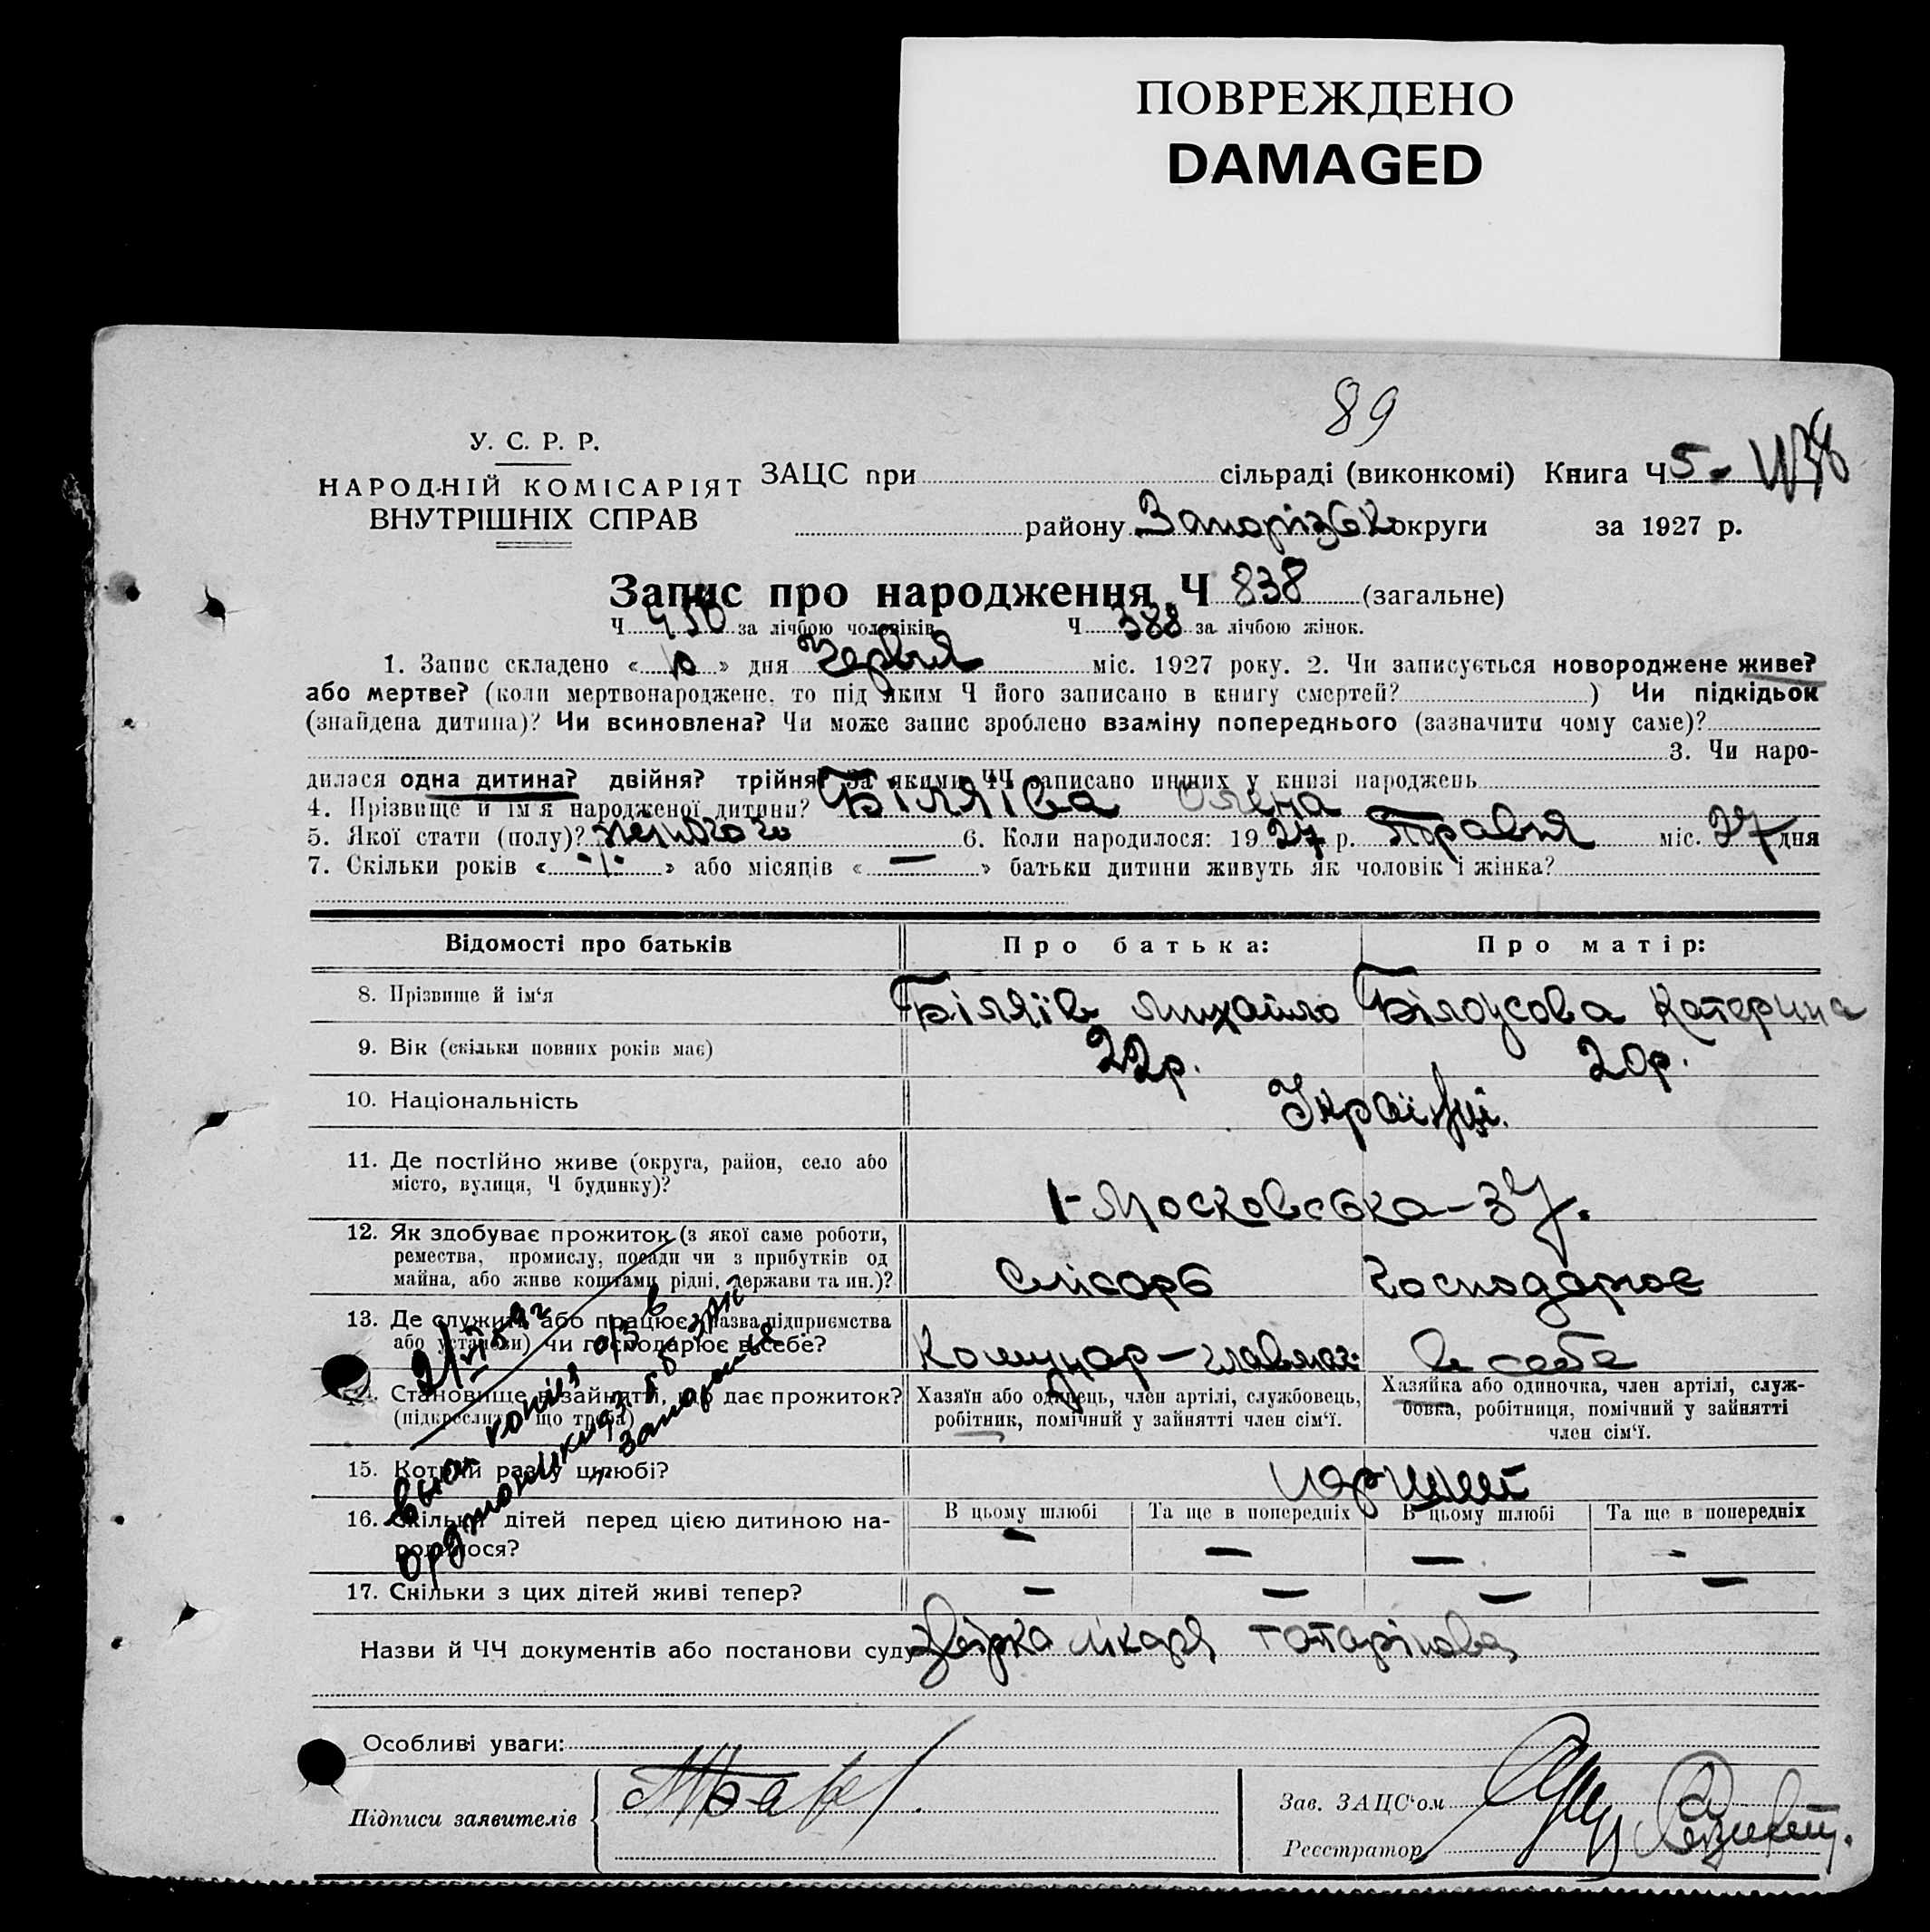 ПОВРЕЖДЕНО
DAMAGED
89
У. С. Р. Р.
НАРОДНІЙ КОМІСАРІЯТ
ВНУТРІШНІХ СПРАВ
ЗАЦС при сільраді (виконкомі) Книга Ч 5
району Запорізьк округи за 1927 р.
Запис про народження Ч 838 (загальне)
Ч 450 за лічбою чоловіків Ч 388 за лічбою жінок.
1. Запис складено « 10 » дня Червня міс. 1927 року. 2. Чи записується новороджене живе?
або мертве? (коли мертвонароджене, то під яким Ч його записано в книгу смертей? ) Чи підкідьок
(знайдена дитина)? Чи всиновлена? Чи може запис зроблено взаміну попереднього (зазначити чому саме)?
3. Чи наро-
дилася одна дитина? двійня? трійня? За якими ЧЧ записано инших у книзі народжень
4. Прізвище й ім'я народженої дитини? Біляїва Олена
5. Якої стати (полу)? жіночого 6. Коли народилося: 1927 р. Травня міс. 27 дня
7. Скільки років « -/- » або місяців « — » батьки дитини живуть як чоловік і жінка?
Відомості про батьків Про батька: Про матір:
8. Прізвище й ім'я Біляїв Михайло Білоусова Катерина
9. Вік (скільки повних років має) 22р. 20р.
10. Національність Українці.
11. Де постійно живе (округа, район, село або
місто, вулиця, Ч будинку)? 1-Московська-37.
12. Як здобуває прожиток (з якої саме роботи,
ремества, промислу, посади чи з прибутків од
майна, або живе коштами рідні, держави та ин.)? Слюсарь Господарює
13. Де служить або працює (назва підприємства
або установи) чи господарює в себе? Комунар- в себе
14. Становище в зайнятті, що дає прожиток?
(підкреслити що треба)
Хазяїн або одинець, член артілі, службовець,
робітник, помічний у зайнятті член сім'ї.
Хазяйка або одиночка, член артілі, служ-
бовка, робітниця, помічний у зайнятті
член сім'ї.
15. Котрий раз у шлюбі? перший
16. Скільки дітей перед цією дитиною на-
родилося?
В цьому шлюбі Та ще в попередніх В цьому шлюбі Та ще в попередніх
— — — —
17. Скільки з цих дітей живі тепер? — — — —
Назви й ЧЧ документів або постанови суду лікаря
Особливі уваги:
Підписи заявителів
Зав. ЗАЦС'ом
Реєстратор